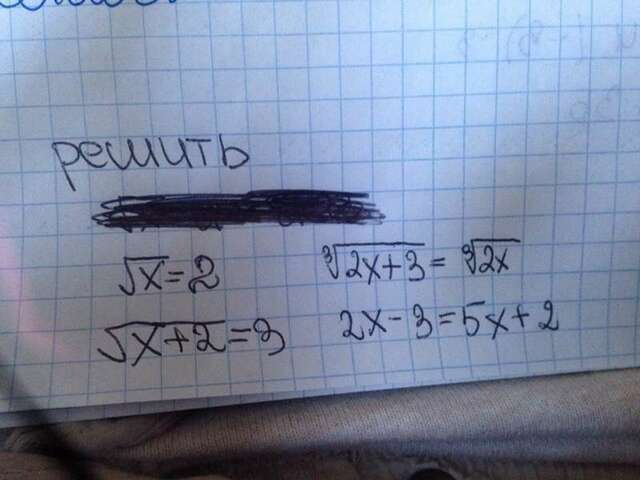 решить
√x = 2
∛(2x+3) = ∛(2x)
√(x+2) = 3
2x - 3 = 5x + 2